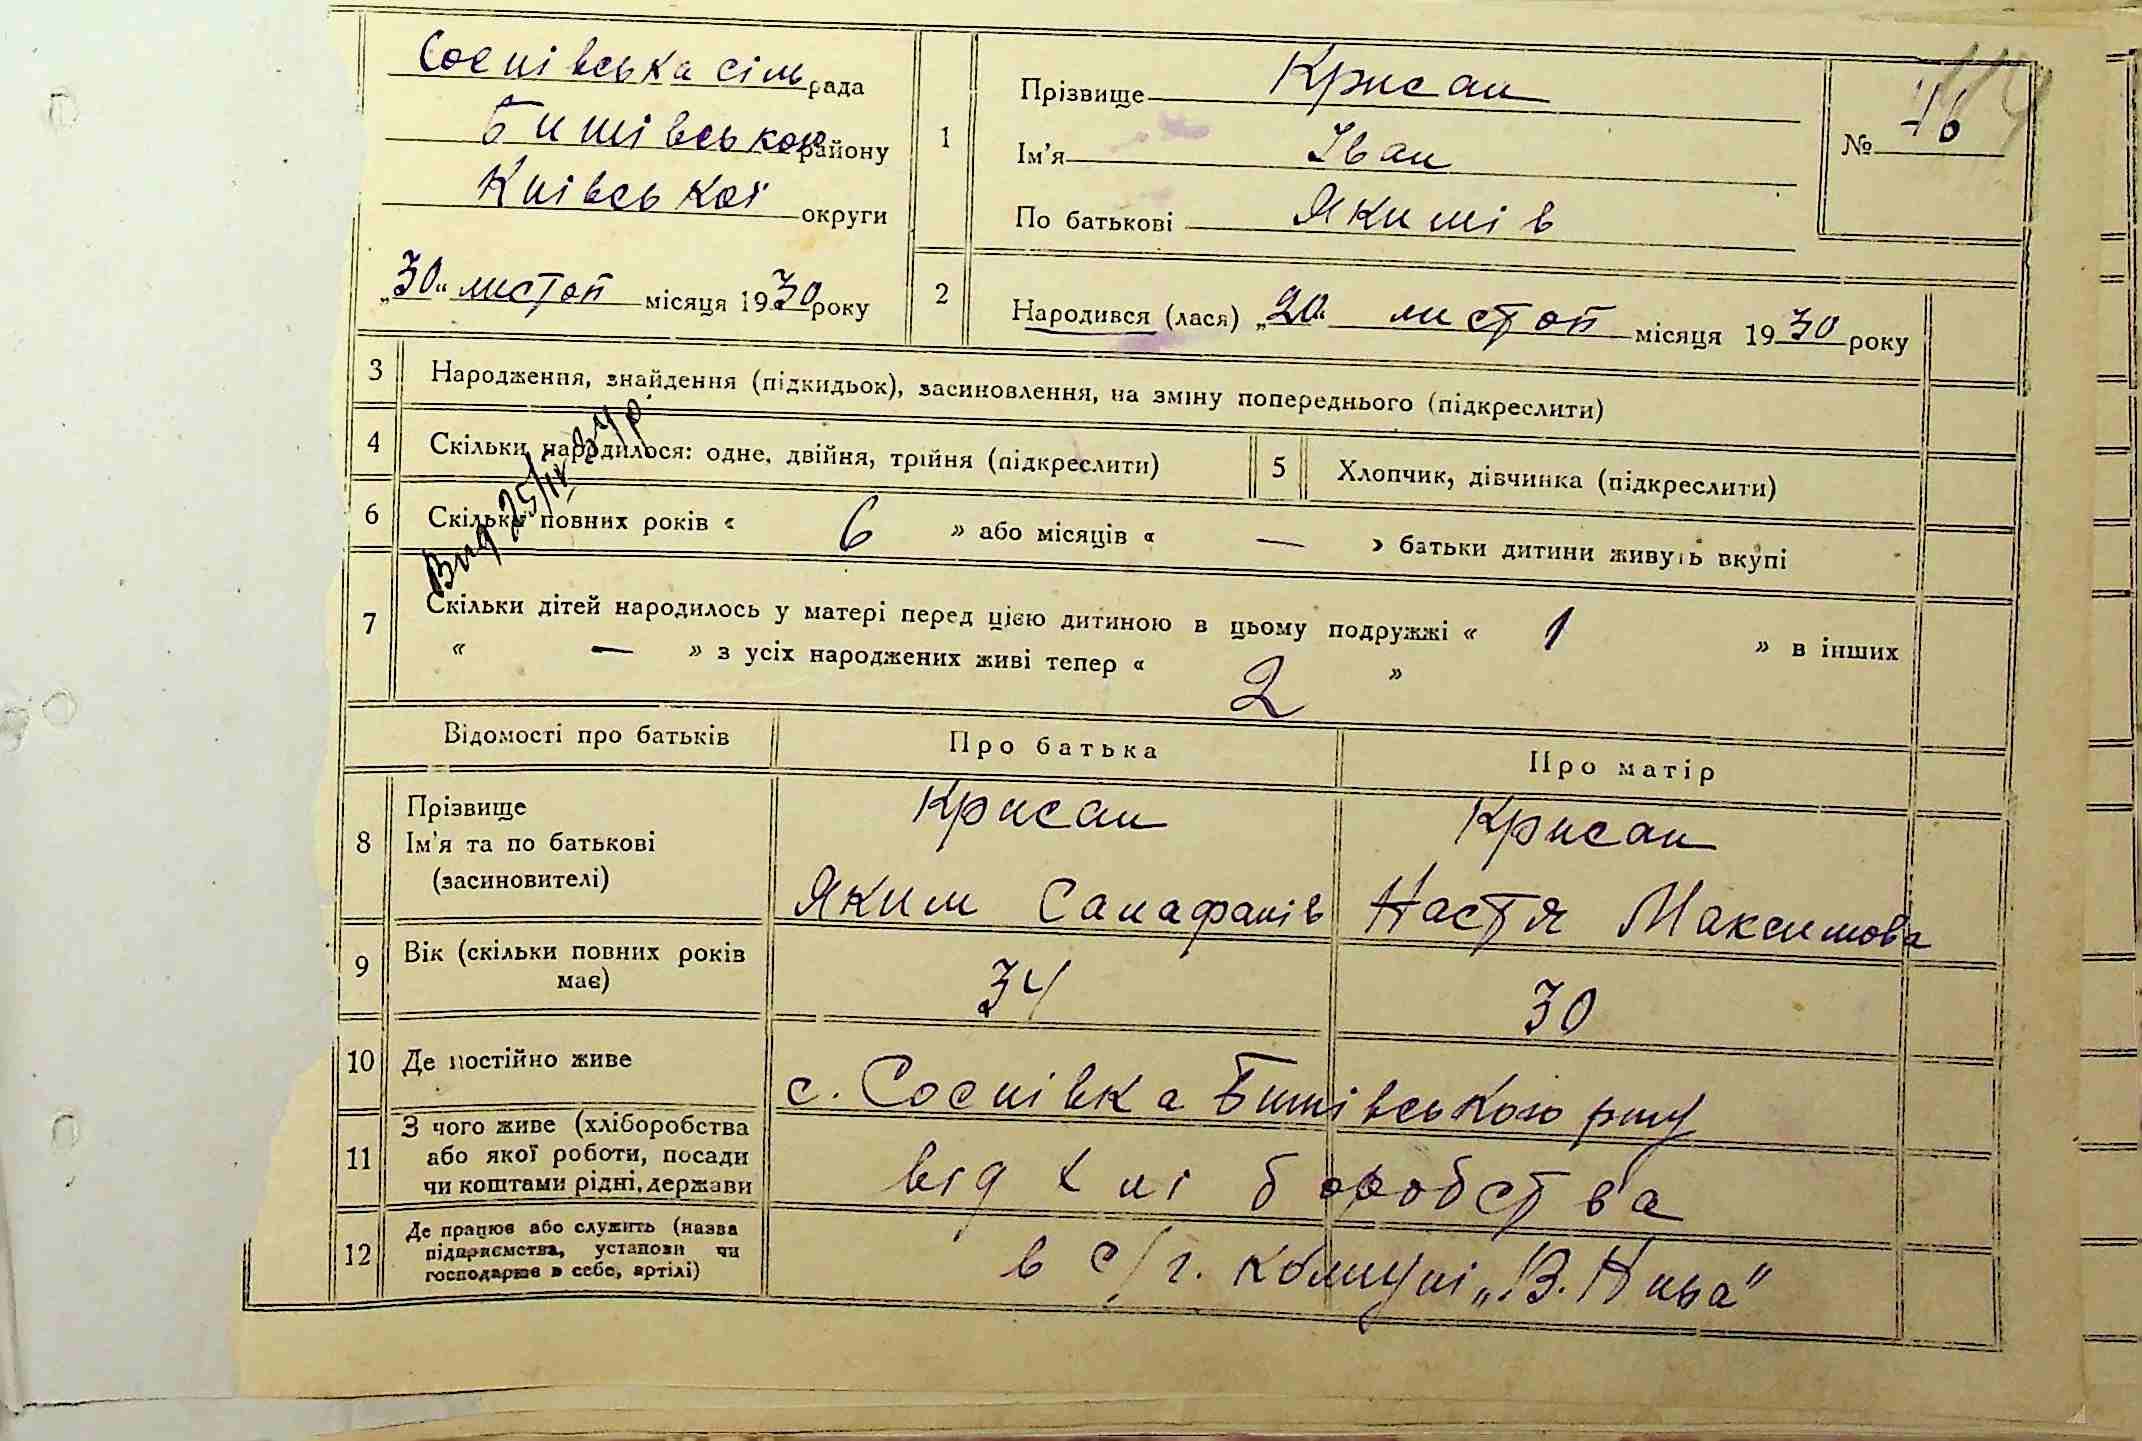 Соснівська сіль рада
Бишівського району
Київської округи
„30“ листоп місяця 1930 року
1
Прізвище Крисан
Ім'я Іван
По батькові Якимів
№ 46
2
Народився (лася) „20“ листоп місяця 1930 року
3 Народження, знайдення (підкидьок), засиновлення, на зміну попереднього (підкреслити)
4 Скільки народилося: одне, двійня, трійня (підкреслити)
5 Хлопчик, дівчинка (підкреслити)
Вид 25/IV 34 р.
6 Скільки повних років « 6 » або місяців « — » батьки дитини живуть вкупі
7 Скільки дітей народилось у матері перед цією дитиною в цьому подружжі « 1 » в інших
« — » з усіх народжених живі тепер « 2 »
Відомості про батьків Про батька Про матір
8 Прізвище
Ім'я та по батькові
(засиновителі)
Крисан
Яким
Крисан
Настя Максимова
9 Вік (скільки повних років
має)
34 30
10 Де постійно живе
с. Соснівка Бишівського р-ну
11 З чого живе (хліборобства
або якої роботи, посади
чи коштами рідні, держави
від хліборобства
12 Де працює або служить (назва
підприємства, установи чи
господарює в себе, артілі)
в с/г. комуні „В. Нива“